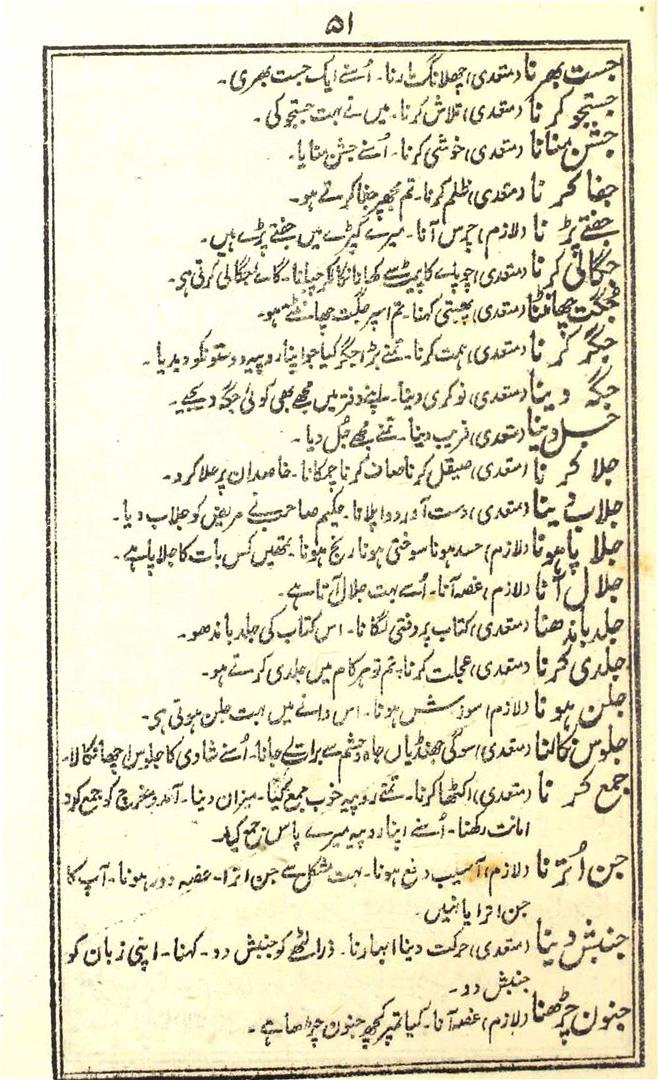 ۵۱
جست بھرنا (متعدی) چھلانگ مارنا۔ اُسنے ایک جست بھری۔
جستجو کرنا (متعدی) تلاش کرنا۔ میں نے بہت جستجو کی۔
جشن منانا (متعدی) خوشی کرنا۔ اُسنے جشن منایا۔
جفا کرنا (متعدی) ظلم کرنا۔ تم مجھپر جفا کرتے ہو۔
جفتے پڑنا (لازم) چرس آنا۔ میرے کپڑے میں جفتے پڑے ہیں۔
جگالی کرنا (متعدی) چوپائے کا پیٹ سے کھانا نکالکر چبانا۔ گائے جگالی کرتی ہی۔
جگت چھانٹنا (متعدی) پھبتی کہنا۔ تم اسپر جگت چھانٹتے ہو۔
جگر کرنا (متعدی) ہمت کرنا۔ تمنے بڑا جگر کیا جو اپنا روپیہ دوستونکو دیدیا۔
جگہ دینا (متعدی) نوکری دینا۔ اپنے دفتر میں مجھے بھی کوئی جگہ دیجیے۔
جل دینا (متعدی) فریب دینا۔ تمنے مجھے جُل دیا۔
جلا کرنا (متعدی) صیقل کرنا صاف کرنا چمکانا۔ خاصدان پر جلا کردو۔
جلاب دینا (متعدی) دست آور دوا پلانا۔ حکیم صاحب نے مریض کو جلاب دیا۔
جلاپا ہونا (لازم) حسد ہونا سوختی ہونا رنج ہونا۔ تمھیں کس بات کا جلاپا ہے۔
جلال آنا (لازم) غصہ آنا۔ اُسے بہت جلال آتا ہے۔
جلد باندھنا (متعدی) کتاب پر دفتی لگانا۔ اس کتاب کی جلد باندھو۔
جلدی کرنا (متعدی) عجلت کرنا۔ تم تو ہر کام میں جلدی کرتے ہو۔
جلن ہونا (لازم) سوزش ہونا۔ اس دانے میں بہت جلن ہوتی ہی۔
جلوس نکالنا (متعدی) جھنڈیاں جاہ و حشم سے برات لے جانا۔ اُسنے شادی کا جلوس اچھا نکالا۔
جمع کرنا (متعدی) اکٹھا کرنا۔ تمنے روپیہ خوب جمع کیا۔ میزان دینا۔ آمد و خرچ کو جمع کرو
امانت رکھنا۔ اُسنے اپنا روپیہ میرے پاس جمع کیا۔
جن اُترنا (لازم) آسیب دفع ہونا۔ بہت مشکل سے جن اترا۔ غصہ دور ہونا۔ آپ کا
جن اترا یا نہیں۔
جنبش دینا (متعدی) حرکت دینا ابھارنا۔ ذرا لٹھے کو جنبش دو۔ کہنا۔ اپنی زبان کو
جنبش دو۔
جنون چڑھنا (لازم) غصہ آنا۔ کیا تمپر کچھ جنون چڑھا ہے۔